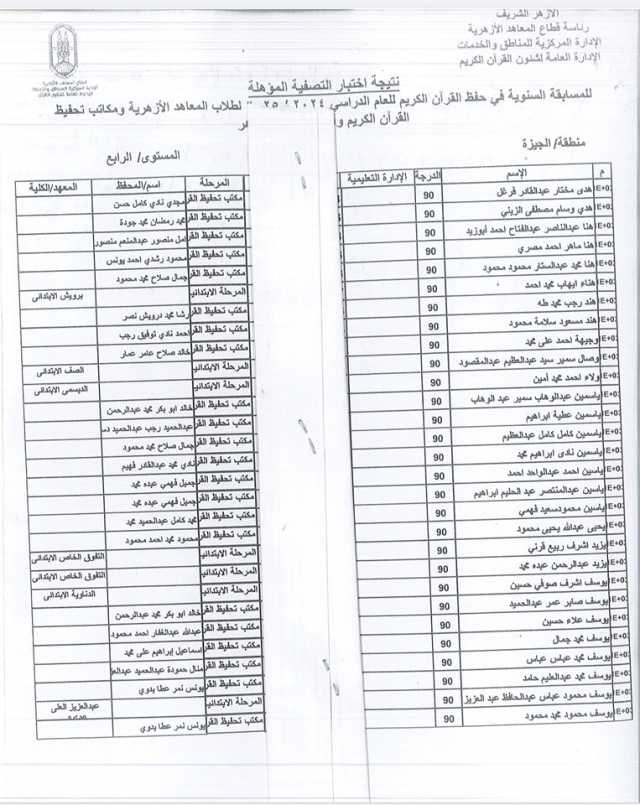 الأزهر الشريف
رئاسة قطاع المعاهد الأزهرية
الإدارة المركزية للمناطق والخدمات
الإدارة العامة لشئون القرآن الكريم
نتيجة اختبار التصفية المؤهلة
للمسابقة السنوية في حفظ القرآن الكريم للعام الدراسي ٢٠٢٤ / ٢٥ لطلاب المعاهد الأزهرية ومكاتب تحفيظ
القرآن الكريم
منطقة/ الجيزة المستوى/ الرابع
م الإسم الدرجة الإدارة التعليمية المرحلة اسم/المحفظ المعهد/الكلية
E+0: هدى مختار عبدالقادر فرغل 90 مكتب تحفيظ القر مجدي نادي كامل حسن
E+0: هدي وسام مصطفى الزيني 90 مكتب تحفيظ القر محمد رمضان محمد جودة
E+0: هنا عبدالناصر عبدالفتاح احمد أبوزيد 90 مكتب تحفيظ القر امل منصور عبدالمنعم منصور
E+0: هنا ماهر احمد مصري 90 مكتب تحفيظ القر محمود رشدي احمد يونس
E+0: هنا محمد عبدالستار محمود محمود 90 مكتب تحفيظ القر جمال صلاح محمد محمود
E+0: هناء ايهاب محمد احمد 90 المرحلة الابتدائية برويش الابتدائى
E+0: هند رجب محمد طه 90 مكتب تحفيظ القر رشا محمد درويش نصر
E+0: هند مسعود سلامة محمود 90 مكتب تحفيظ القر احمد نادي توفيق رجب
E+0: وجيهة احمد على محمد 90 مكتب تحفيظ القر خالد صلاح عامر عمار
E+0: وصال سمير سيد عبدالعظيم عبدالمقصود 90 المرحلة الابتدائية الصف الابتدائى
E+0: ولاء احمد محمد أمين 90 المرحلة الابتدائية الديسمى الابتدائى
E+0: ياسمين عبدالوهاب سمير عبد الوهاب 90 مكتب تحفيظ القر خالد ابو بكر محمد عبدالرحمن
E+0: ياسمين عطية ابراهيم 90 مكتب تحفيظ القر عبدالحميد رجب عبدالحميد دس
E+0: ياسمين كامل كامل عبدالعظيم 90 مكتب تحفيظ القر جمال صلاح محمد محمود
E+0: ياسمين نادى ابراهيم محمد 90 مكتب تحفيظ القر نادي محمد عبدالقادر فهيم
E+0: ياسين احمد عبدالواحد احمد 90 مكتب تحفيظ القر جميل فهمي عبده محمد
E+0: ياسين عبدالمنتصر عبد الحليم ابراهيم 90 مكتب تحفيظ القر جميل فهمي عبده محمد
E+0: ياسين محمودسعيد فهمي 90 مكتب تحفيظ القر محمد كامل عبدالحميد محمد
E+0: يحيى عبدالله يحيى محمود 90 مكتب تحفيظ القر محمود محمد احمد محمود
E+0: يزيد اشرف ربيع قرني 90 المرحلة الابتدائية التفوق الخاص الابتدائى
E+0: يزيد عبدالرحمن عبده محمد 90 المرحلة الابتدائية التفوق الخاص الابتدائى
E+0: يوسف اشرف صوفي حسين 90 المرحلة الابتدائية الدناوية الابتدائى
E+0: يوسف صابر عمر عبدالحميد 90 مكتب تحفيظ القر خالد ابو بكر محمد عبدالرحمن
E+0: يوسف علاء حسين 90 مكتب تحفيظ القر عبدالله عبدالغفار احمد محمود
E+0: يوسف محمد جمال 90 مكتب تحفيظ القر اسماعيل إبراهيم على محمد
E+0: يوسف محمد عباس عباس 90 مكتب تحفيظ القر منال حمودة عبدالحميد عبدالعا
E+0: يوسف محمد عبدالعليم حامد 90 مكتب تحفيظ القر يونس نمر عطا بدوي
E+0: يوسف محمود عباس عبدالحافظ عبد العزيز 90 المرحلة الابتدائية عبدالعزيز العلى
E+0: يوسف محمود محمد محمود 90 مكتب تحفيظ القر يونس نمر عطا بدوي